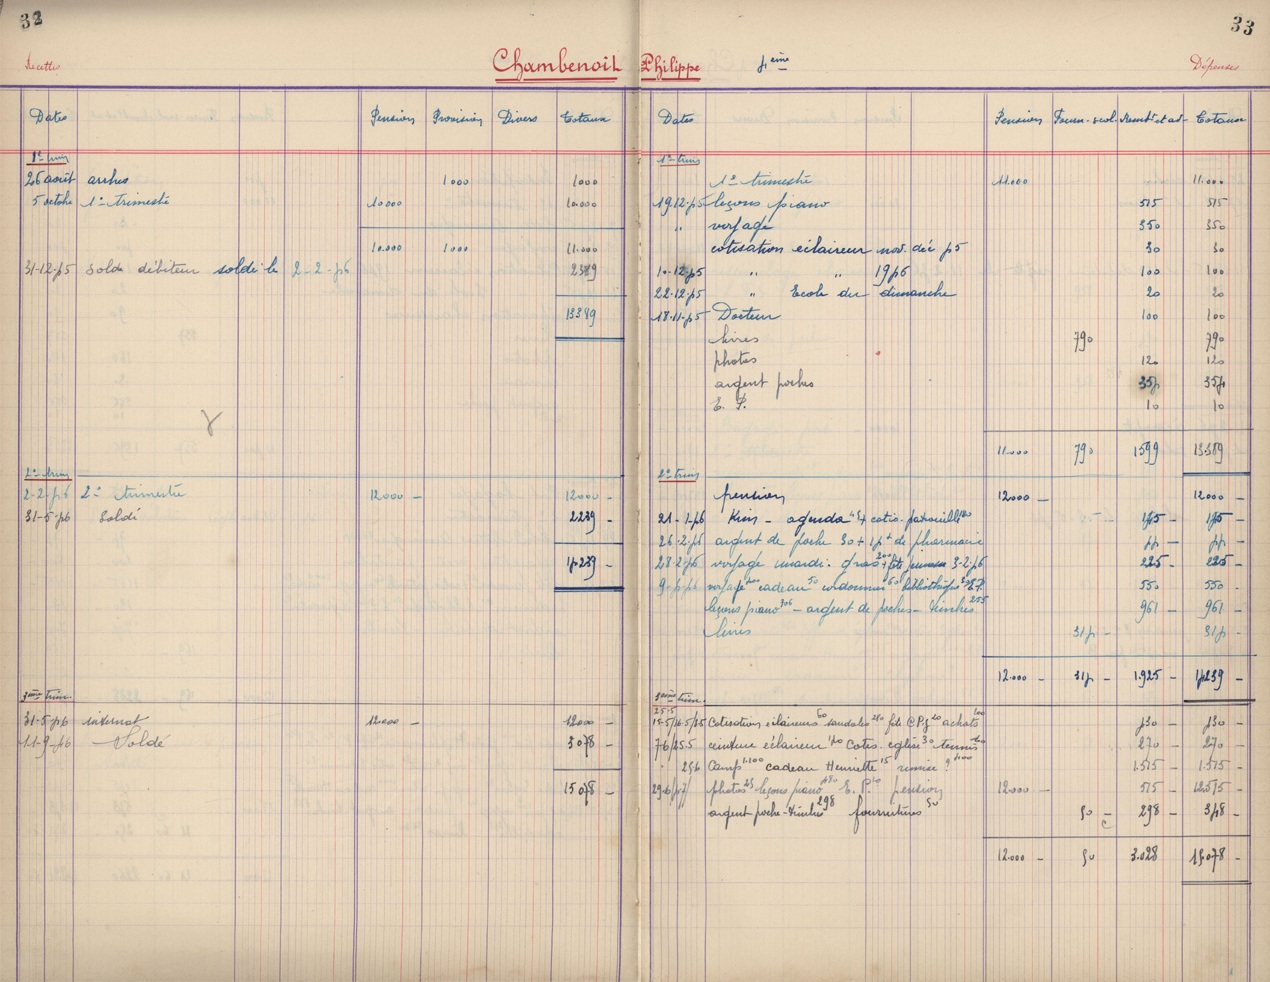 32
33
Recettes
Chambenoit Philippe 4ème
Dépenses
Dates Pension Provision Divers Totaux
1er trim
26 août arrhes 1000 1000
5 octobre 1er trimestre 10.000 10.000
10.000 1000 11.000
31-12-55 solde débiteur soldé le 2-2-56 2389
13389
2e trim
2-2-56 2e trimestre 12000 — 12000 —
31-5-56 Soldé 2239 —
14.239 —
3ème trim.
31-5-56 internat 12.000 — 12000 —
11-9-56 Soldé 3078 —
15078 —
Dates Pension Fourn. scol. Totaux
1er trim
1er trimestre 11.000 11.000
19.12.55 leçons piano 515 515
" voyage 350 350
cotisation éclaireur nov. déc 55 30 30
10-12-55 " " 1956 100 100
22-12-55 " Ecole du dimanche 20 20
18-11-55 Docteur 100 100
livres 790 790
photos 120 120
argent poches 354 354
E. P. 10 10
11.000 790 1599 13389
2e trim
pension 12000 — 12000 —
21-1-56 Kim - agenda cotis. patrouille
26-2-56 argent de poche 30 + de pharmacie
28-2-56 voyage mardi-gras fête jeunesse 3-2-56 225 — 225 —
voyage cadeau 50 cordonnier 60 bibliothèque 550 — 550 —
leçons piano — argent de poches — 961 — 961 —
livres 314 — 314 —
12.000 — 314 — 1.925 — 14239 —
3ème trim.
Cotisations éclaireurs 60 sandales fête achats 100 730 — 730 —
ceinture éclaireur cotis. église 30 tennis 270 — 270 —
Camp 1.100 cadeau Henriette 15 remise 400 1.515 — 1.515 —
photos leçons piano E. P. 10 pension 12000 — 515 — 12.515 —
argent poche 298 fournitures 50 50 — 298 — 348 —
12.000 — 50 3.028 15.078 —